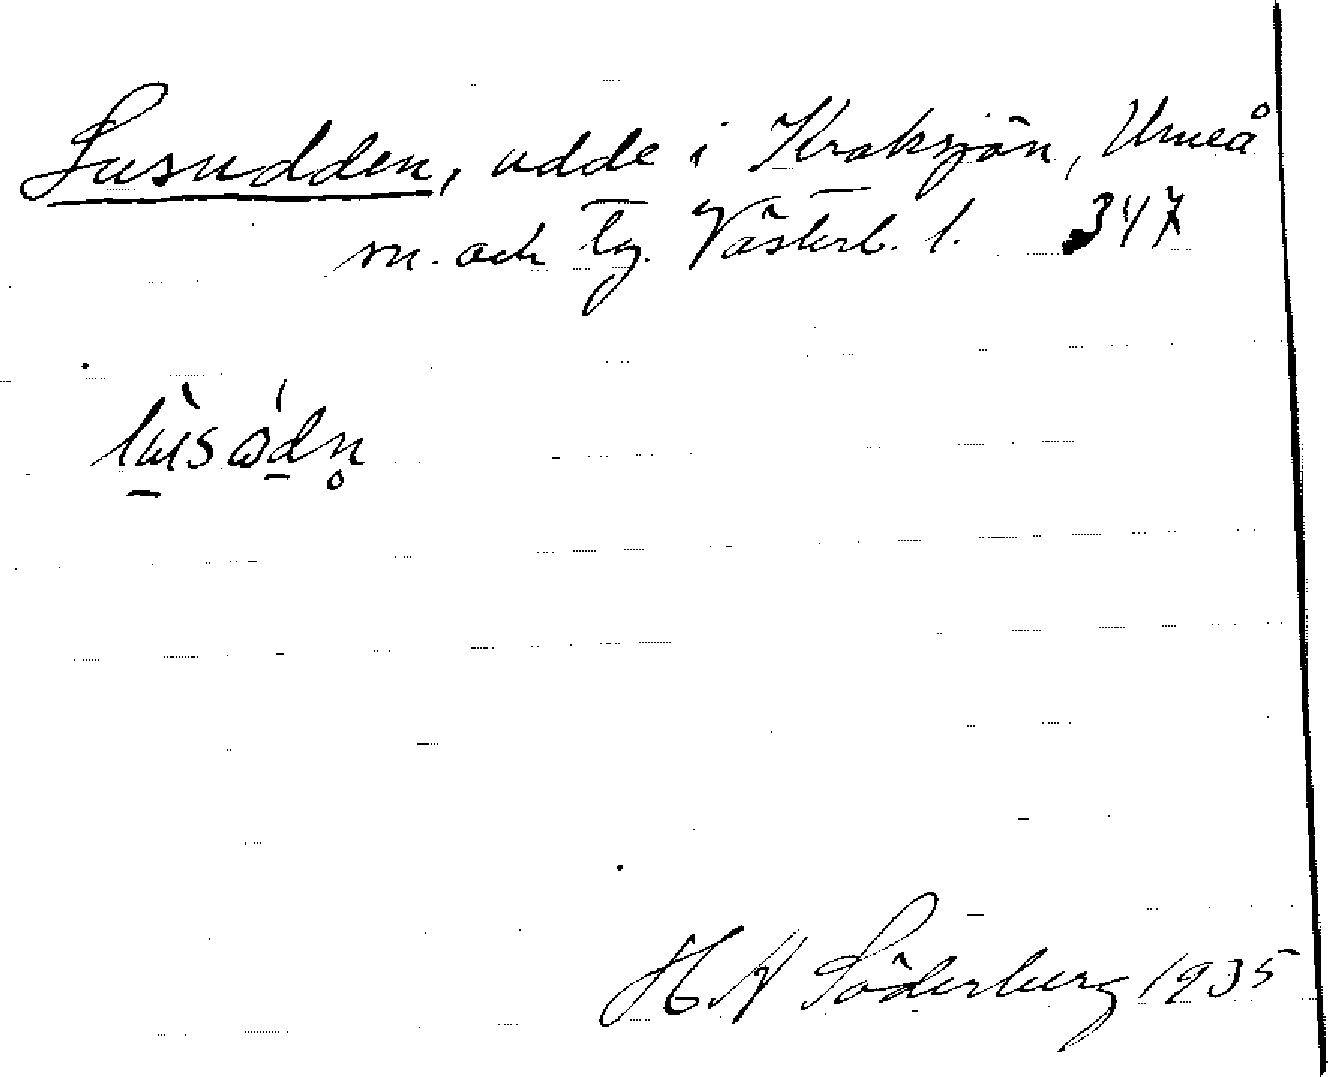 Lusudden, udde i Kroksjön, Umeå
sn. och tg. Västerb. l. 347
H N Söderberg 1935